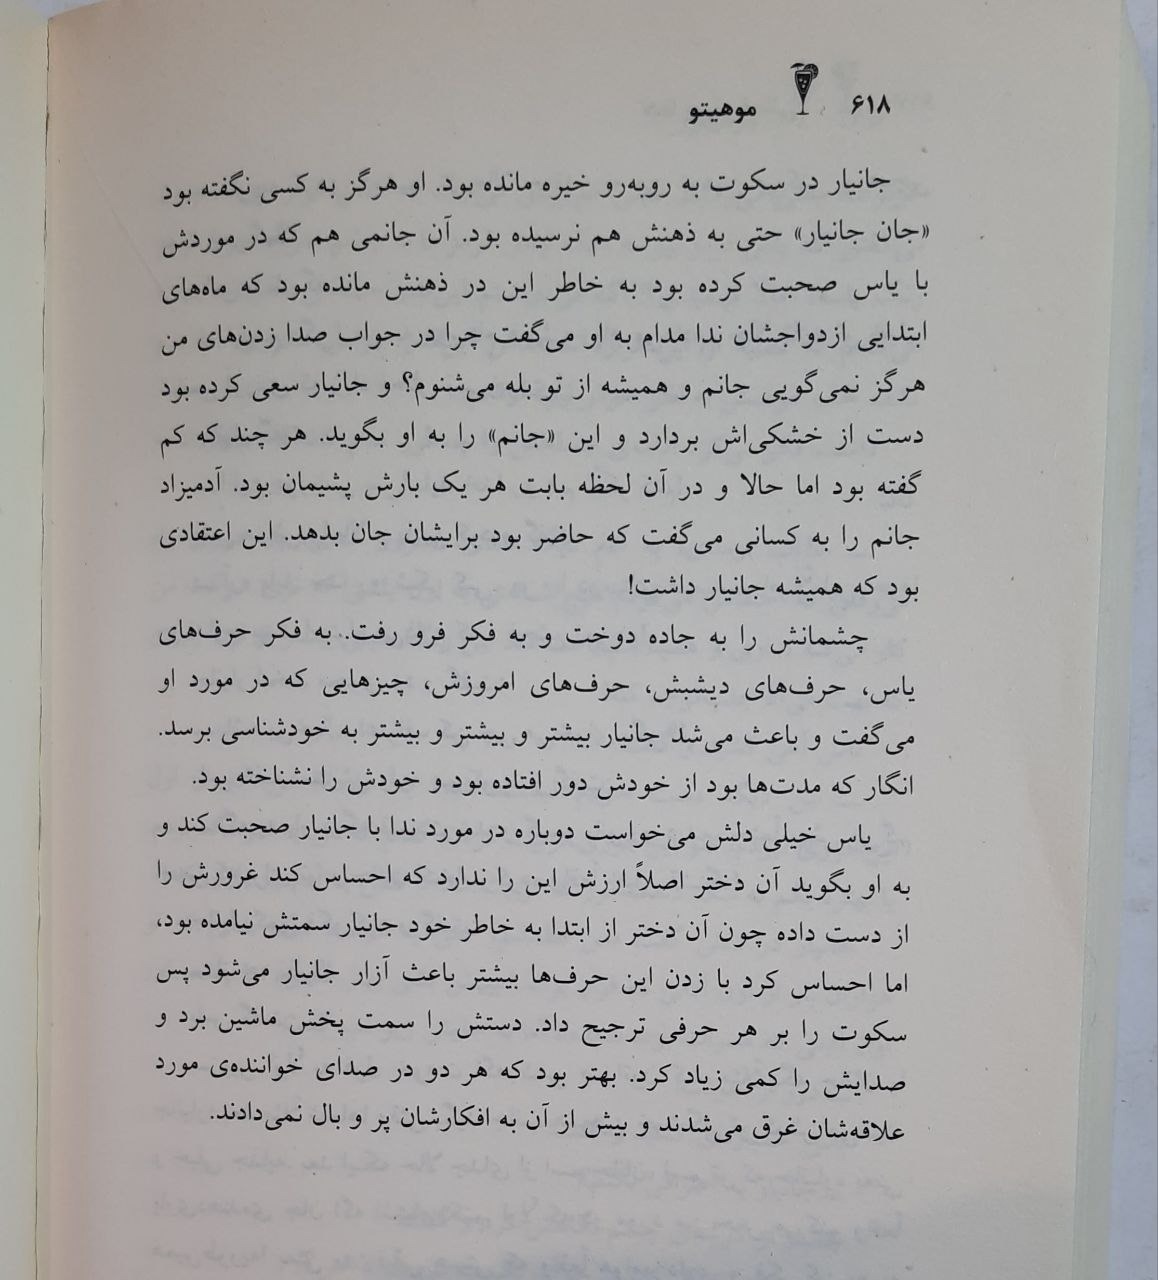 ۶۱۸ موهیتو
جانیار در سکوت به روبه‌رو خیره مانده بود. او هرگز به کسی نگفته بود
«جان جانیار» حتی به ذهنش هم نرسیده بود. آن جانمی هم که در موردش
با یاس صحبت کرده بود به خاطر این در ذهنش مانده بود که ماه‌های
ابتدایی ازدواجشان ندا مدام به او می‌گفت چرا در جواب صدا زدن‌های من
هرگز نمی‌گویی جانم و همیشه از تو بله می‌شنوم؟ و جانیار سعی کرده بود
دست از خشکی‌اش بردارد و این «جانم» را به او بگوید. هر چند که کم
گفته بود اما حالا و در آن لحظه بابت هر یک بارش پشیمان بود. آدمیزاد
جانم را به کسانی می‌گفت که حاضر بود برایشان جان بدهد. این اعتقادی
بود که همیشه جانیار داشت!
چشمانش را به جاده دوخت و به فکر فرو رفت. به فکر حرف‌های
یاس، حرف‌های دیشبش، حرف‌های امروزش، چیزهایی که در مورد او
می‌گفت و باعث می‌شد جانیار بیشتر و بیشتر و بیشتر به خودشناسی برسد.
انگار که مدت‌ها بود از خودش دور افتاده بود و خودش را نشناخته بود.
یاس خیلی دلش می‌خواست دوباره در مورد ندا با جانیار صحبت کند و
به او بگوید آن دختر اصلاً ارزش این را ندارد که احساس کند غرورش را
از دست داده چون آن دختر از ابتدا به خاطر خود جانیار سمتش نیامده بود،
اما احساس کرد با زدن این حرف‌ها بیشتر باعث آزار جانیار می‌شود پس
سکوت را بر هر حرفی ترجیح داد. دستش را سمت پخش ماشین برد و
صدایش را کمی زیاد کرد. بهتر بود که هر دو در صدای خواننده‌ی مورد
علاقه‌شان غرق می‌شدند و بیش از آن به افکارشان پر و بال نمی‌دادند.